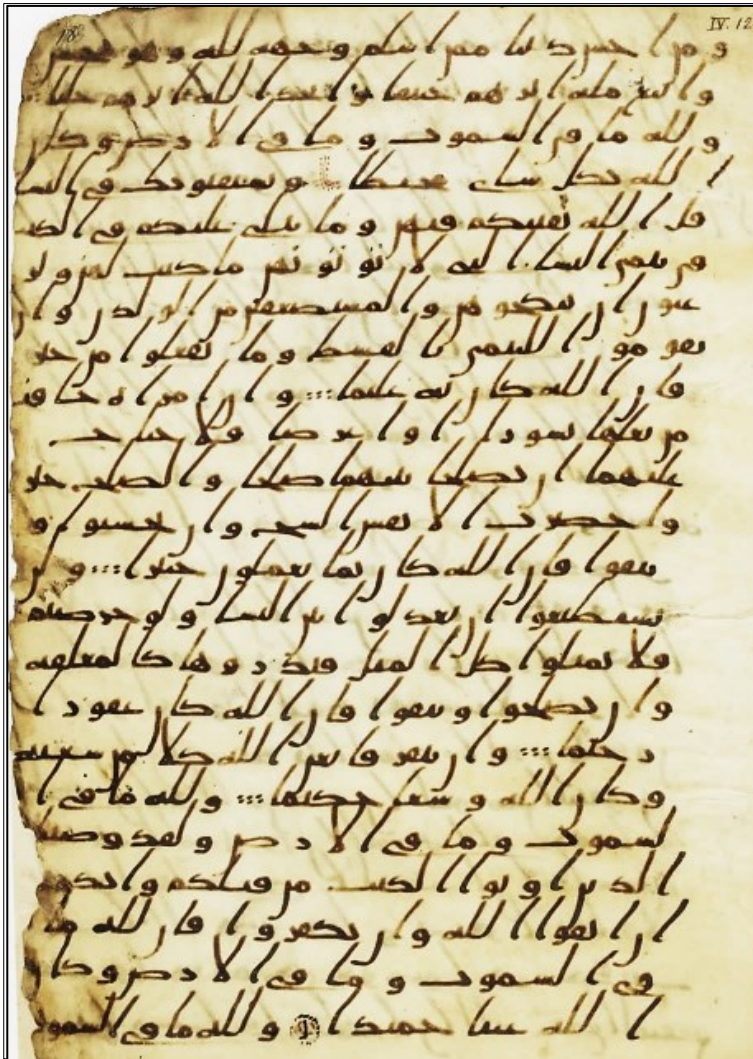 IV. 12
ومن احسن دينا ممن اسلم وجهه لله وهو محسن
واتبع ملة ابرهيم حنيفا واتخذ الله ابرهيم خليلا
ولله ما في السموت وما في الارض وكان
الله بكل شي محيطا ويستفتونك في النسا
قل الله يفتيكم فيهن وما يتلى عليكم في الكتب
في يتمى النسا التي لا توتونهن ما كتب لهن وتر
غبون ان تنكحوهن والمستضعفين من الولدن وان
تقوموا لليتمى بالقسط وما تفعلوا من خير
فان الله كان به عليما وان امراة خافت
من بعلها نشوزا او اعرضا فلا جناح
عليهما ان يصلحا بينهما صلحا والصلح خير
واحضرت الانفس الشح وان تحسنوا و
تتقوا فان الله كان بما تعملون خبيرا ولن
تستطيعوا ان تعدلوا بين النسا ولو حرصتم
فلا تميلوا كل الميل فتذروها كالمعلقة
وان تصلحوا وتتقوا فان الله كان غفورا
رحيما وان يتفرقا يغن الله كلا من سعته
وكان الله وسعا حكيما ولله ما في ا
لسموت وما في الارض ولقد وصينا
الذين اوتوا الكتب من قبلكم واياكم
ان اتقوا الله وان تكفروا فان لله ما
في السموت وما في الارض وكان
الله غنيا حميدا ولله ما في السموت